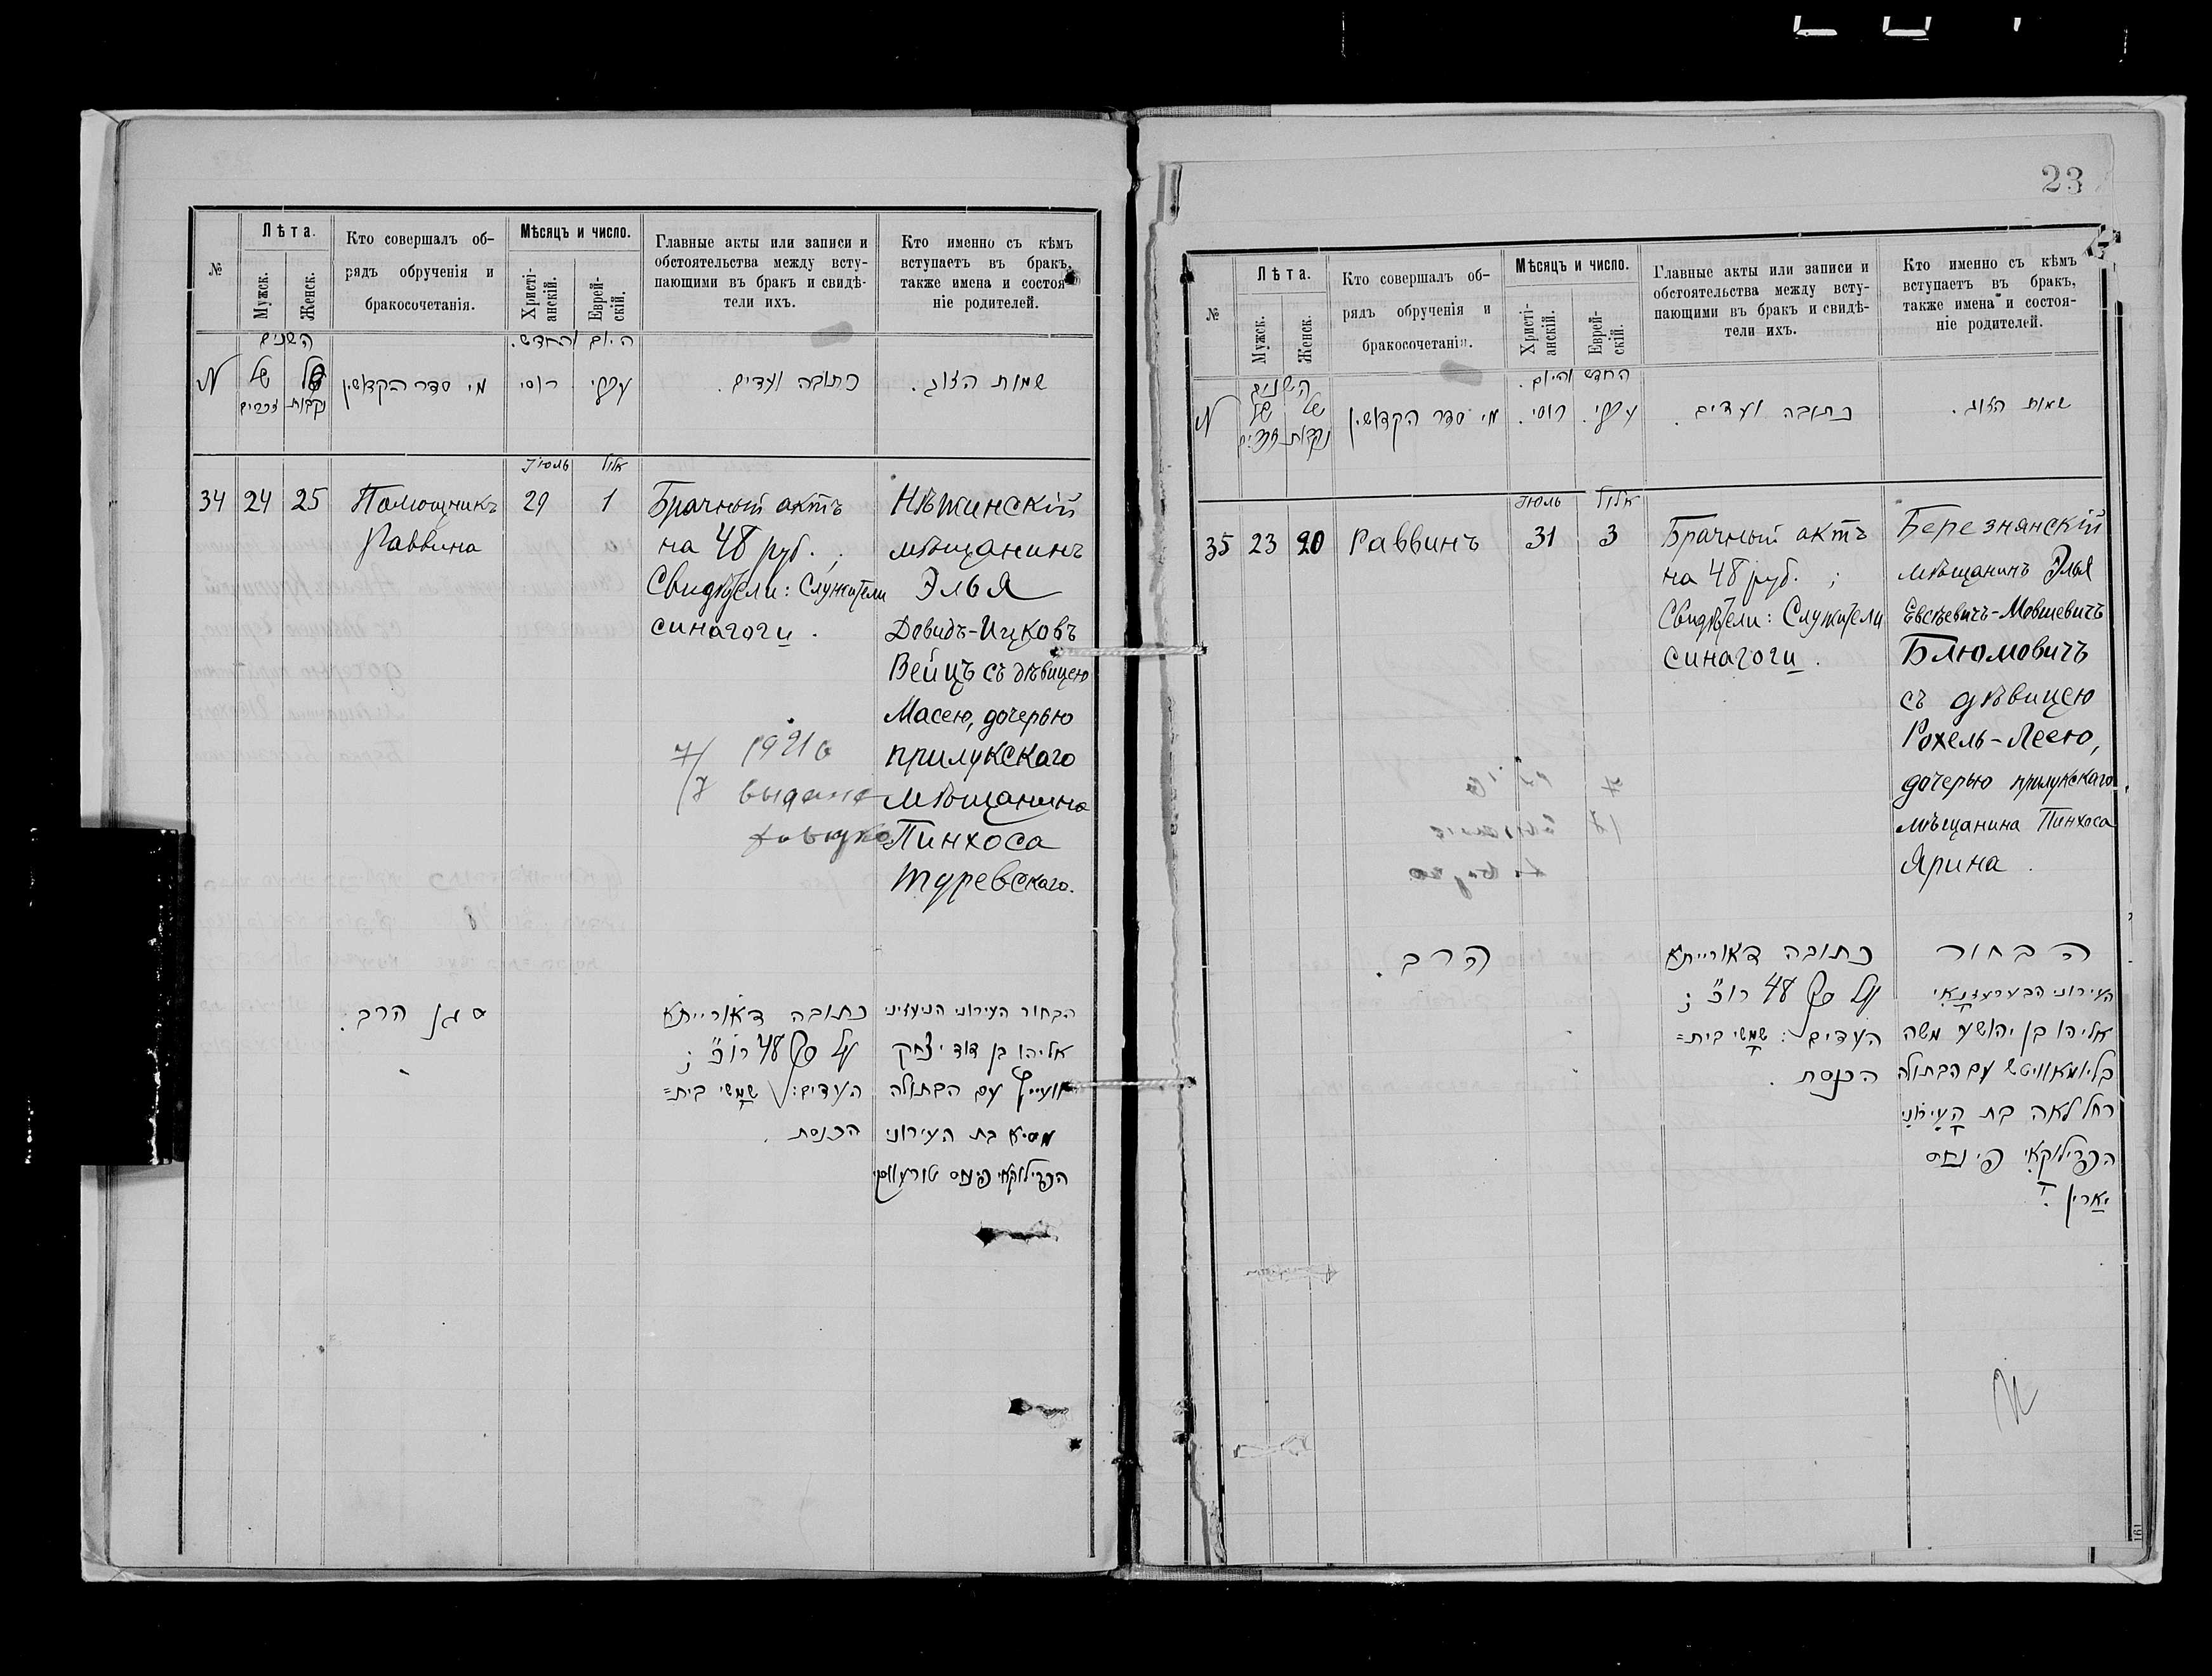 №
Лѣта.
Мужск.
Женск.
Кто совершалъ об-
рядъ обрученія и
бракосочетанія.
Мѣсяцъ и число.
Христі-
анскій.
Еврей-
скій.
Главные акты или записи и
обстоятельства между всту-
пающими въ бракъ и свидѣ-
тели ихъ.
Кто именно съ кѣмъ
вступаетъ въ бракъ,
также имена и состоя-
ніе родителей.
השנים
היום והחדש.
N
של
זכרים
של
נקבות
מי סדר הקדושין
רוסי
עברי
כתובה ועדים.
שמות הזוג.
Іюль
אלול
34
24
25
Помощникъ
Раввина
29
1
Брачный актъ
на 48 руб.;
Свидѣтели: Служители
синагоги.
Нѣжинскій
мѣщанинъ
Элья
Довидъ-Ицковъ
Вейцъ съ дѣвицею
Масею, дочерью
прилукскаго
мѣщанина
Пинхоса
Туревскаго.
7/ 1921 г
выдана
סגן הרב.
כתובה דאורייתא
על סך 48 רו״כ;
העדים: שמשי בית=
הכנסת.
הבחור העירוני הניעזיני
אליהו בן דוד יצחק
ווייץ עם הבתולה
מסיא בת העירוני
הפרילוקאי פינחס טורעווסקי
23
№
Лѣта.
Мужск.
Женск.
Кто совершалъ об-
рядъ обрученія и
бракосочетанія.
Мѣсяцъ и число.
Христі-
анскій.
Еврей-
скій.
Главные акты или записи и
обстоятельства между всту-
пающими въ бракъ и свидѣ-
тели ихъ.
Кто именно съ кѣмъ
вступаетъ въ бракъ,
также имена и состоя-
ніе родителей.
השנים
החדש והיום.
N
של
זכרים
של
נקבות
מי סדר הקדושין
רוסי.
עברי.
כתובה ועדים.
שמות הזוג.
Іюль
אלול
35
23
20
Раввинъ
31
3
Брачный актъ
на 48 руб.;
Свидѣтели: Служители
синагоги.
Березнянскій
мѣщанинъ Элья
Евсѣевичъ-Мовшевичъ
Блюмовичъ
съ дѣвицею
Рохель-Леею,
дочерью прилукскаго
мѣщанина Пинхоса
Ярина.
הרב.
כתובה דאורייתא
על סך 48 רו״כ;
העדים: שמשי בית=
הכנסת.
הבחור
העירוני הבערעזנאי
אליהו בן יהושע משה
בליומאוויטש עם הבתולה
רחל לאה בת העירוני
הפרילוקאי פינחס
יארין.
161